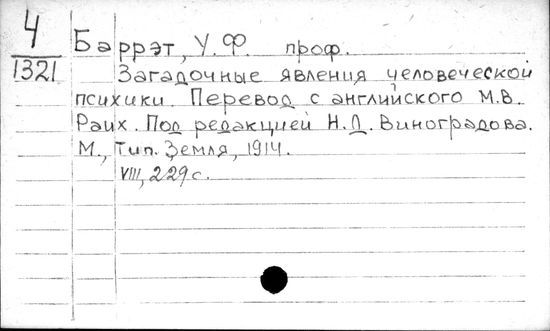 4
1321
Баррэт, У. Ф. проф.
Загадочные явления человеческой
психики. Перевод с английского М.В.
Раих. Под редакцией Н.Д. Виноградова.
М., Тип. Земля, 1914.
VIII, 229 с.